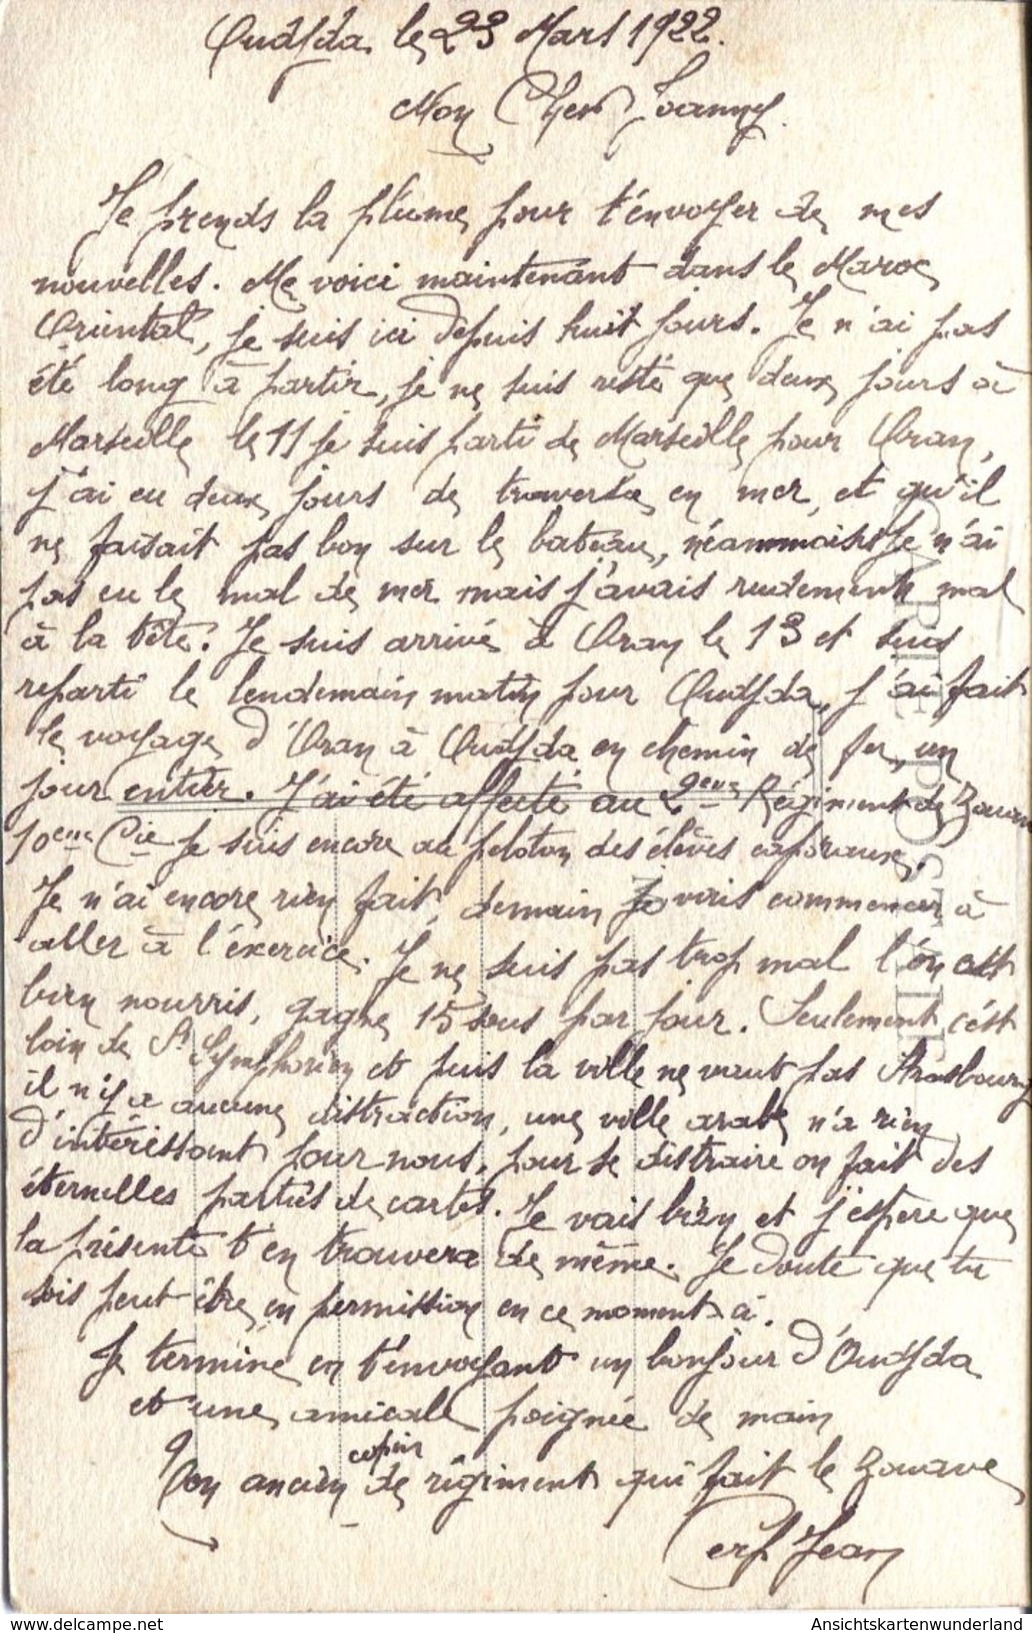 Oudjda le 23 Mars 1922.
Mon Cher Joanny.
Je prends la plume pour t'envoyer de mes
nouvelles. Me voici maintenant dans le Maroc
Oriental, je suis ici depuis huit jours. Je n'ai pas
été long à partir, je ne suis resté que deux jours à
Marseille le 11 je suis parti de Marseille pour Oran,
j'ai eu deux jours de traversée en mer, et qu'il
ne faisait pas bon sur le bateau, néanmoins je n'ai
pas eu le mal de mer mais j'avais rudement mal
à la tête. Je suis arrivé à Oran le 13 et suis
reparti le lendemain matin pour Oudjda, j'ai fait
le voyage d'Oran à Oudjda en chemin de fer, un
jour entier. J'ai été affecté au 2eme Régiment de Zouaves
10eme Cie Je suis encore au peloton des élèves caporaux.
Je n'ai encore rien fait, demain je vais commencer à
aller à l'éxercice. Je ne suis pas trop mal l'on est
bien nourris, gagne 15 sous par jour. Seulement c'est
loin de St Symphorien et puis la ville ne vaut pas Strasbourg
il n'y a aucune distraction, une ville arabe n'a rien
d'intéressant pour nous, pour se distraire on fait des
éternelles parties de cartes. Je vais bien et j'espère que
la présente t'en trouvera de même. Je doute que tu
sois peut être en permission en ce moment à.
Je termine en t'envoyant un bonjour d'Oudjda
et une amicale poignée de main
Ton ancien copain de régiment qui fait le zouave
Cerf Jean
CARTE POSTALE
www.delcampe.net
Ansichtskartenwunderland